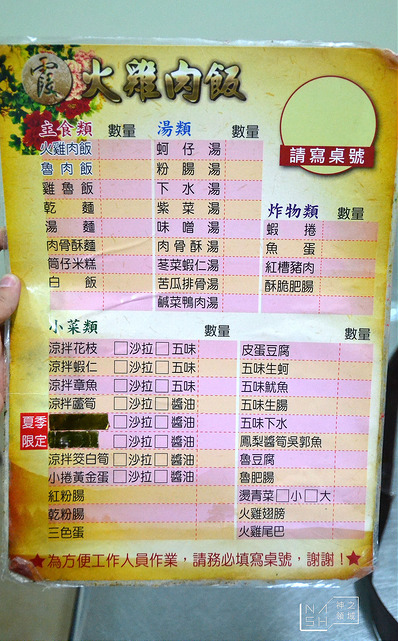 霞 火雞肉飯
請寫桌號
主食類 數量
火雞肉飯
魯肉飯
雞魯飯
乾麵
湯麵
肉骨酥麵
筒仔米糕
白飯
湯類 數量
蚵仔湯
粉腸湯
下水湯
紫菜湯
味噌湯
肉骨酥湯
莧菜蝦仁湯
苦瓜排骨湯
鹹菜鴨肉湯
炸物類 數量
蝦捲
魚蛋
紅槽豬肉
酥脆肥腸
小菜類 數量
涼拌花枝 □沙拉□五味
涼拌蝦仁 □沙拉□五味
涼拌章魚 □沙拉□五味
涼拌蘆筍 □沙拉□醬油
夏季
限定
□沙拉□醬油
□沙拉□醬油
涼拌筊白筍 □沙拉□醬油
小捲黃金蛋 □沙拉□醬油
紅粉腸
乾粉腸
三色蛋
數量
皮蛋豆腐
五味生蚵
五味魷魚
五味生腸
五味下水
鳳梨醬筍吳郭魚
魯豆腐
魯肥腸
燙青菜□小□大
火雞翅膀
火雞尾巴
★為方便工作人員作業，請務必填寫桌號，謝謝！★
NASH 神之領域